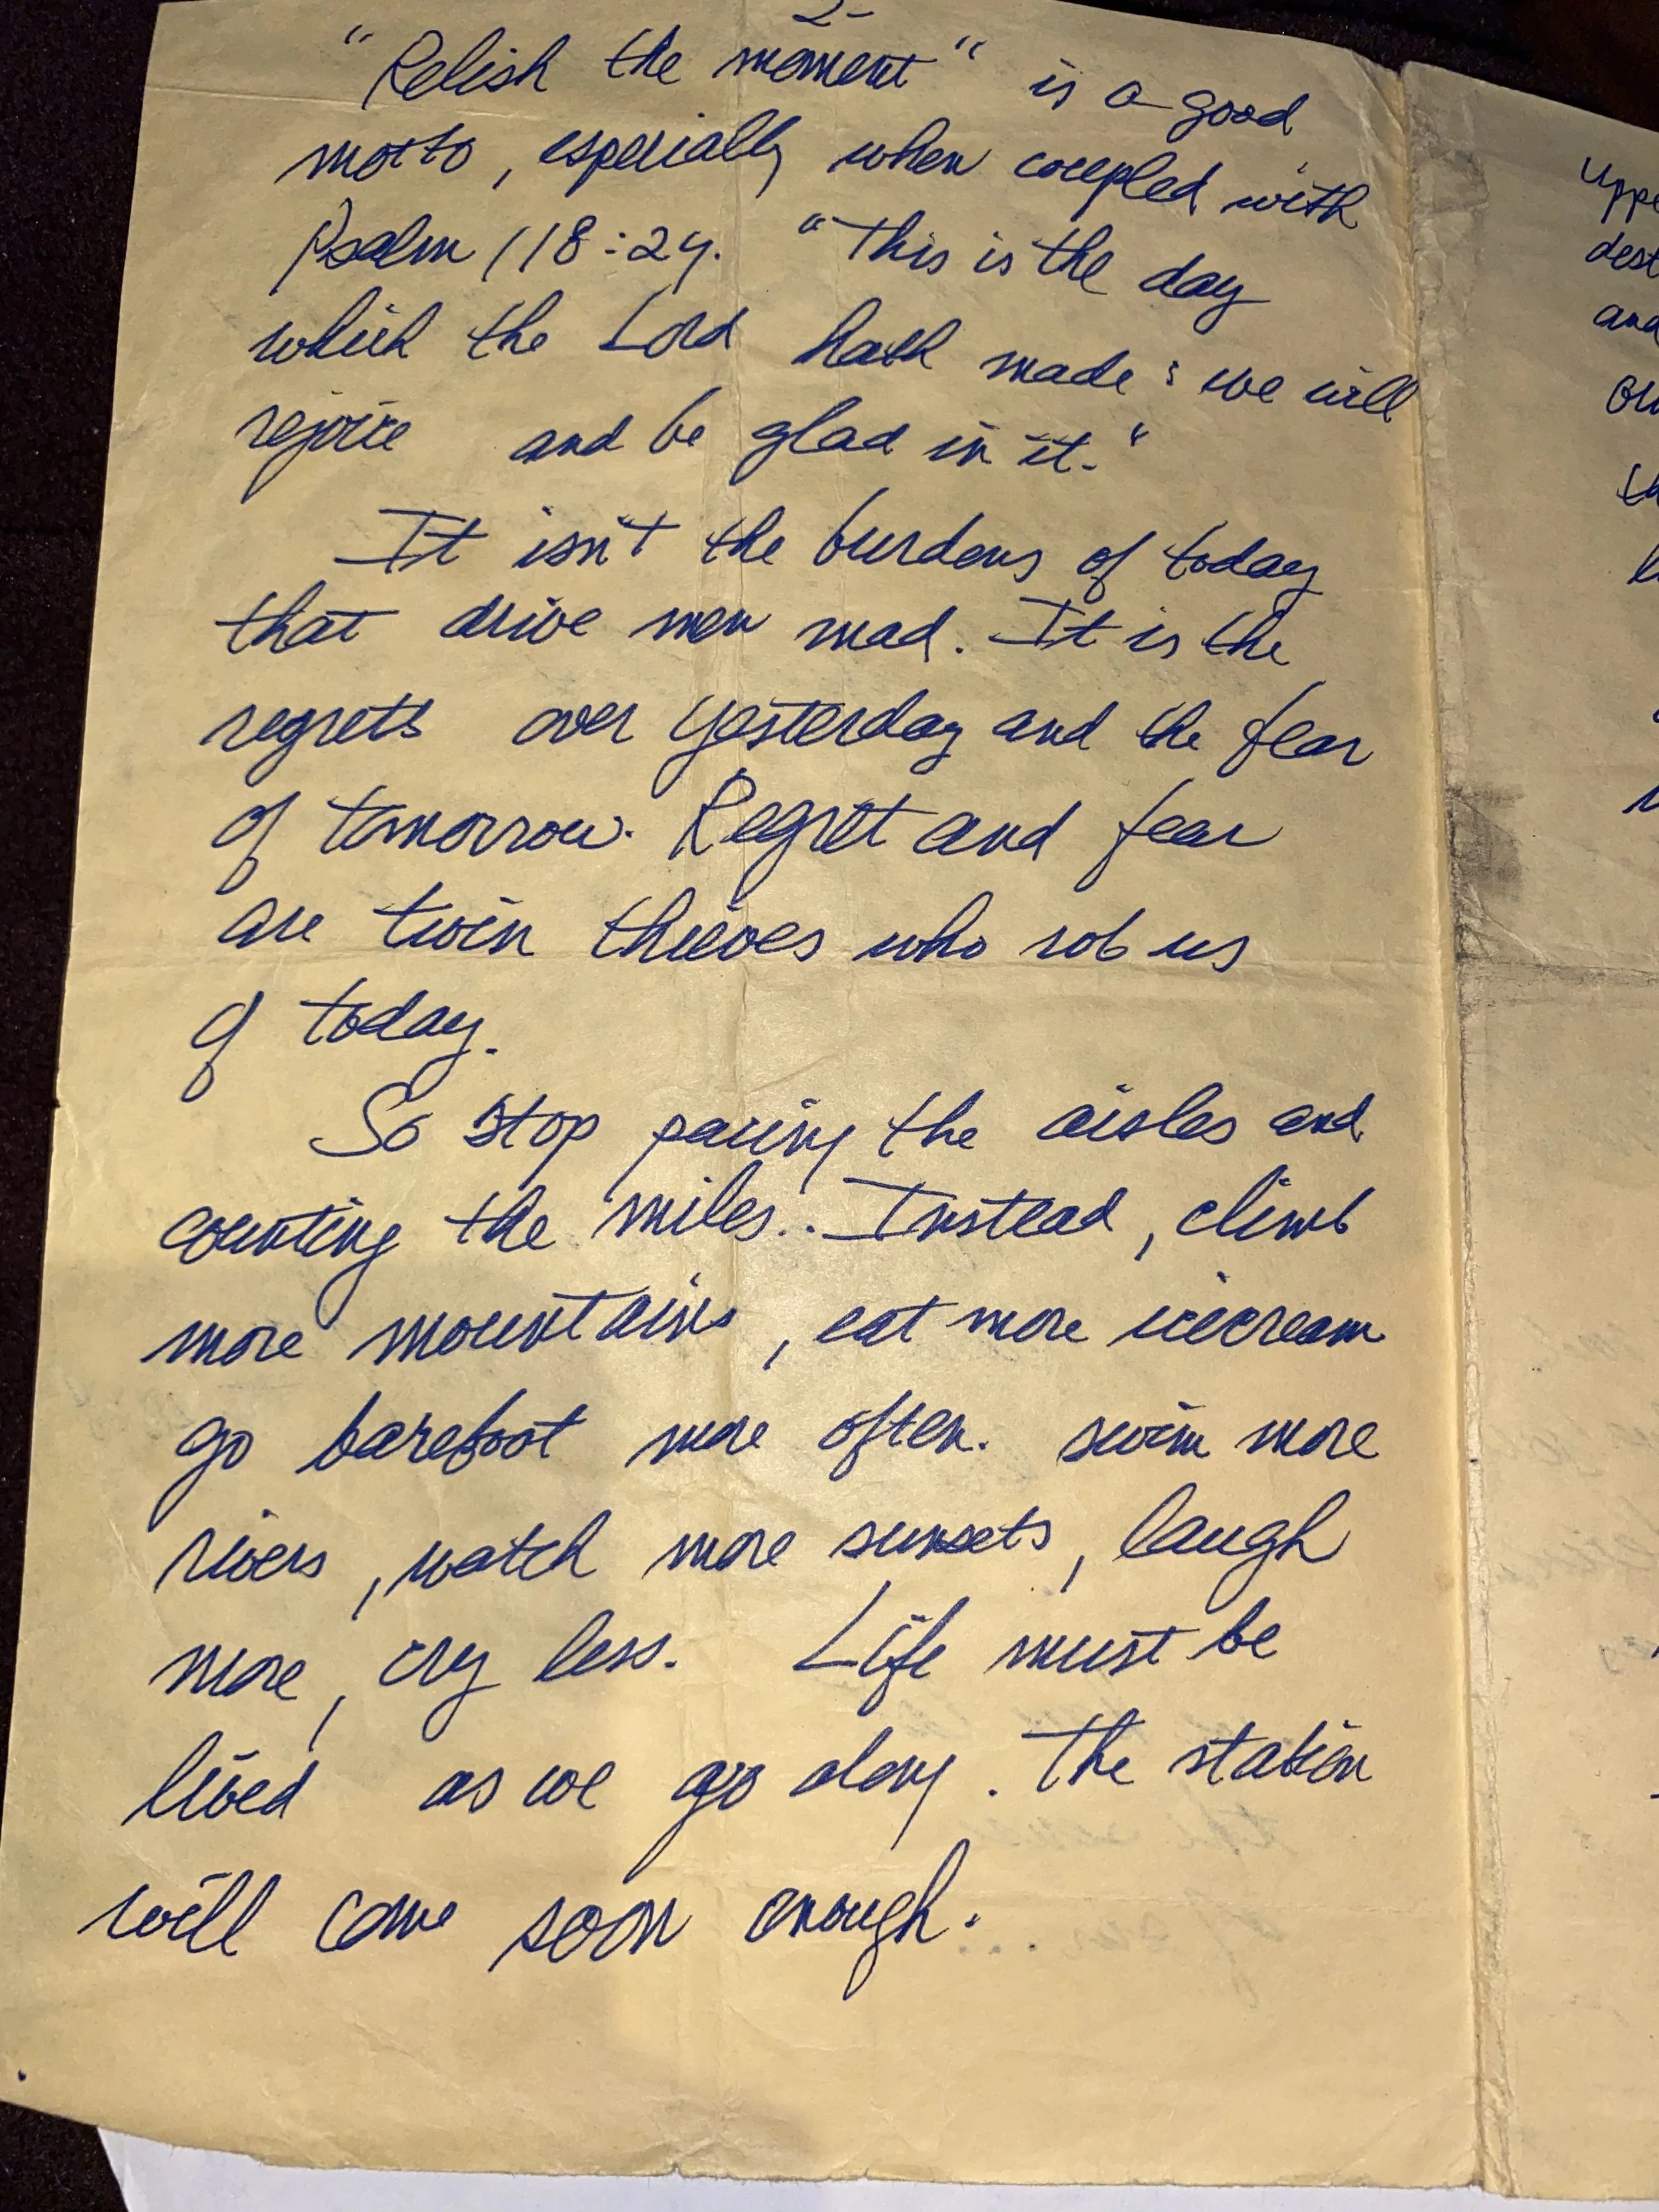 2-
"Relish the moment" is a good
motto, especially when coupled with
Psalm 118:24. "This is the day
which the Lord hath made: we will
rejoice and be glad in it."
It isn't the burdens of today
that drive men mad. It is the
regrets over yesterday and the fear
of tomorrow. Regret and fear
are twin thieves who rob us
of today.
So stop pacing the aisles and
counting the miles.. Instead, climb
more mountains, eat more icecream
go barefoot more often. swim more
rivers, watch more sunsets, laugh
more, cry less. Life must be
lived as we go along. The station
will come soon enough.
and